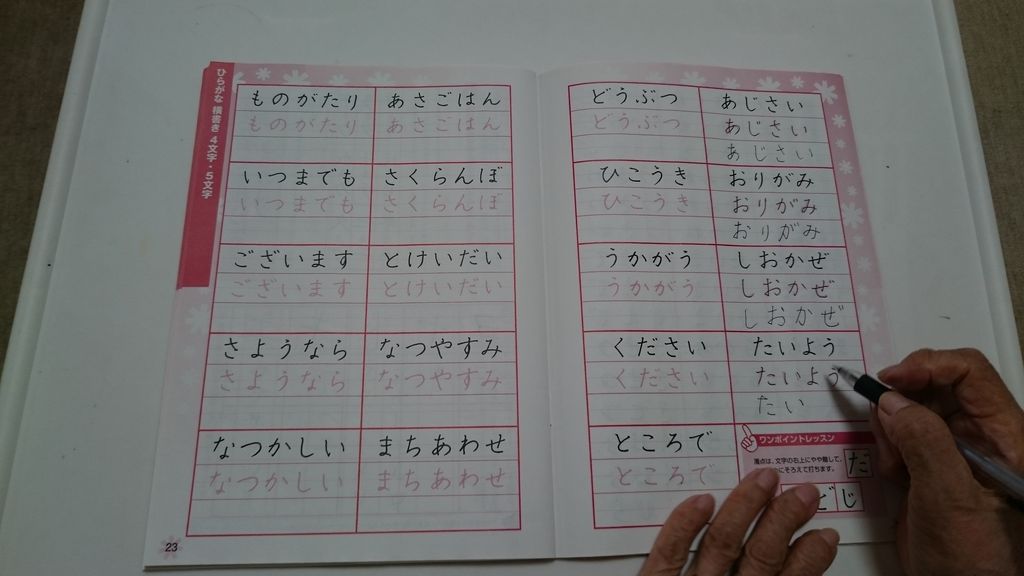 ひらがな 横書き 4文字・5文字
ものがたり
ものがたり
あさごはん
あさごはん
いつまでも
いつまでも
さくらんぼ
さくらんぼ
ございます
ございます
とけいだい
とけいだい
さようなら
さようなら
なつやすみ
なつやすみ
なつかしい
なつかしい
まちあわせ
まちあわせ
23
どうぶつ
どうぶつ
あじさい
あじさい
あじさい
ひこうき
ひこうき
おりがみ
おりがみ
おりがみ
うかがう
うかがう
しおかぜ
しおかぜ
しおかぜ
ください
ください
たいよう
たいよう
たい
ところで
ところで
ワンポイントレッスン
濁点は、文字の右上にやや離して、
にそろえて打ちます。
だ
ど
じ